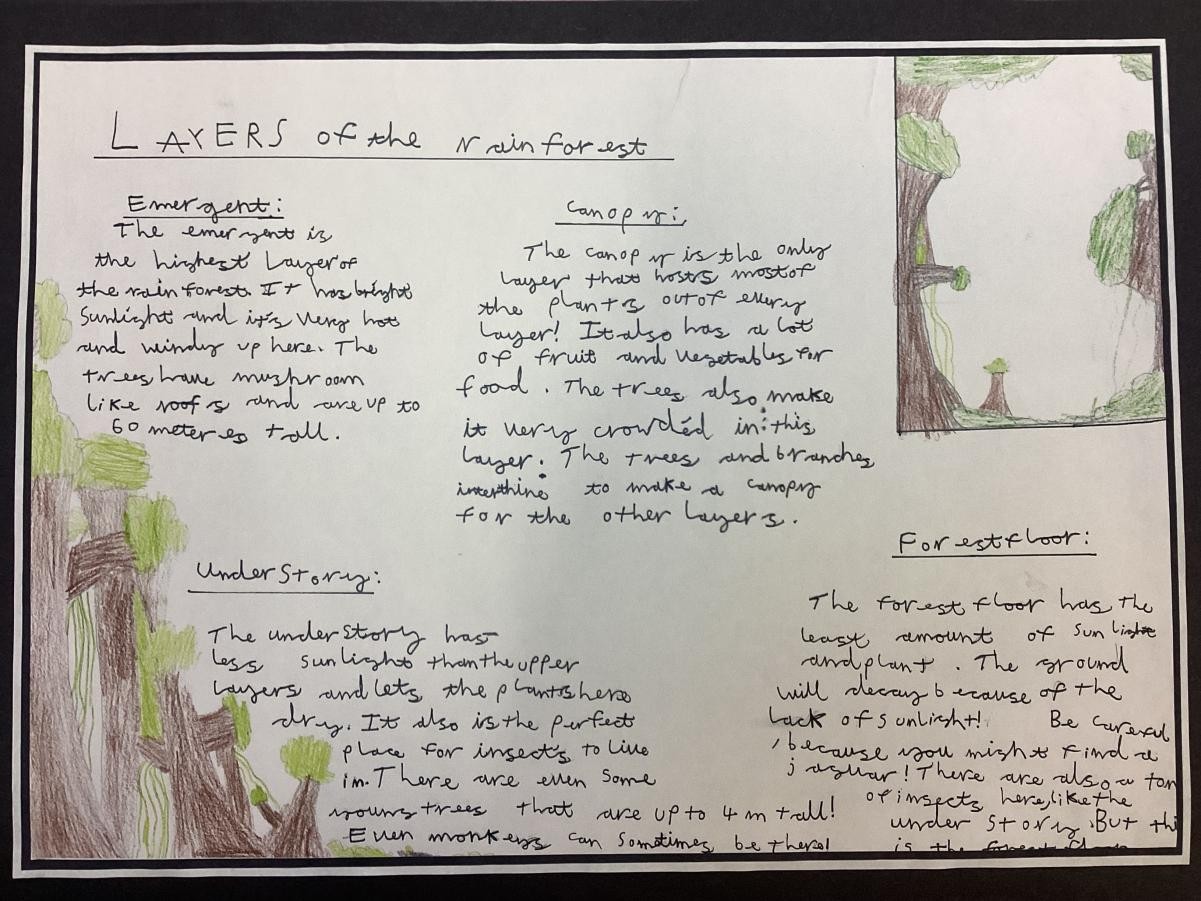 LAYERS of the rainforest
Emergent:
The emergent is
the highest Layer of
the rainforest. It has bright
Sunlight and it's very hot
and windy up here. The
trees have mushroom
like roofs and are up to
60 meteres tall.
Canopy:
The canopy is the only
layer that hosts most of
the plants out of every
layer! It also has a lot
of fruit and vegetables for
food. The trees also make
it very crowded in this
layer. The trees and branches
interthine to make a canopy
for the other layers.
Understory:
The understory has
less sunlight than the upper
layers and lets the plants here
dry. It also is the perfect
place for insects to live
in. There are even some
young trees that are up to 4m tall!
Even monkeys can sometimes be there!
Forest floor:
The forest floor has the
least amount of sunlight
and plant. The ground
will decay because of the
lack of sunlight! Be careful
, because you might find a
jaguar! There are also a ton
of insects here, like the
understory. But thi
is the forest floor